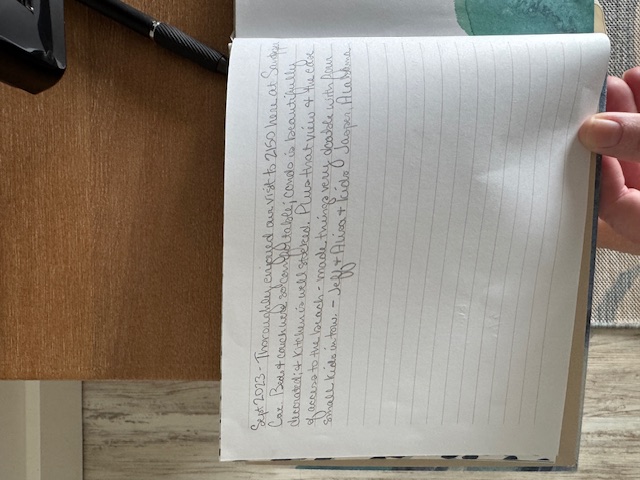 Sept 2023 - Thoroughly enjoyed our visit to 2150 here at Santa
Beds & couch were so comfortable; condo is beautifully
decorated; & kitchen is well stocked. Plus that view & the ease
of access to the beach - made things very doable with four
small kids in tow. - Jeff & Alisa & kids Jasper, Alabama